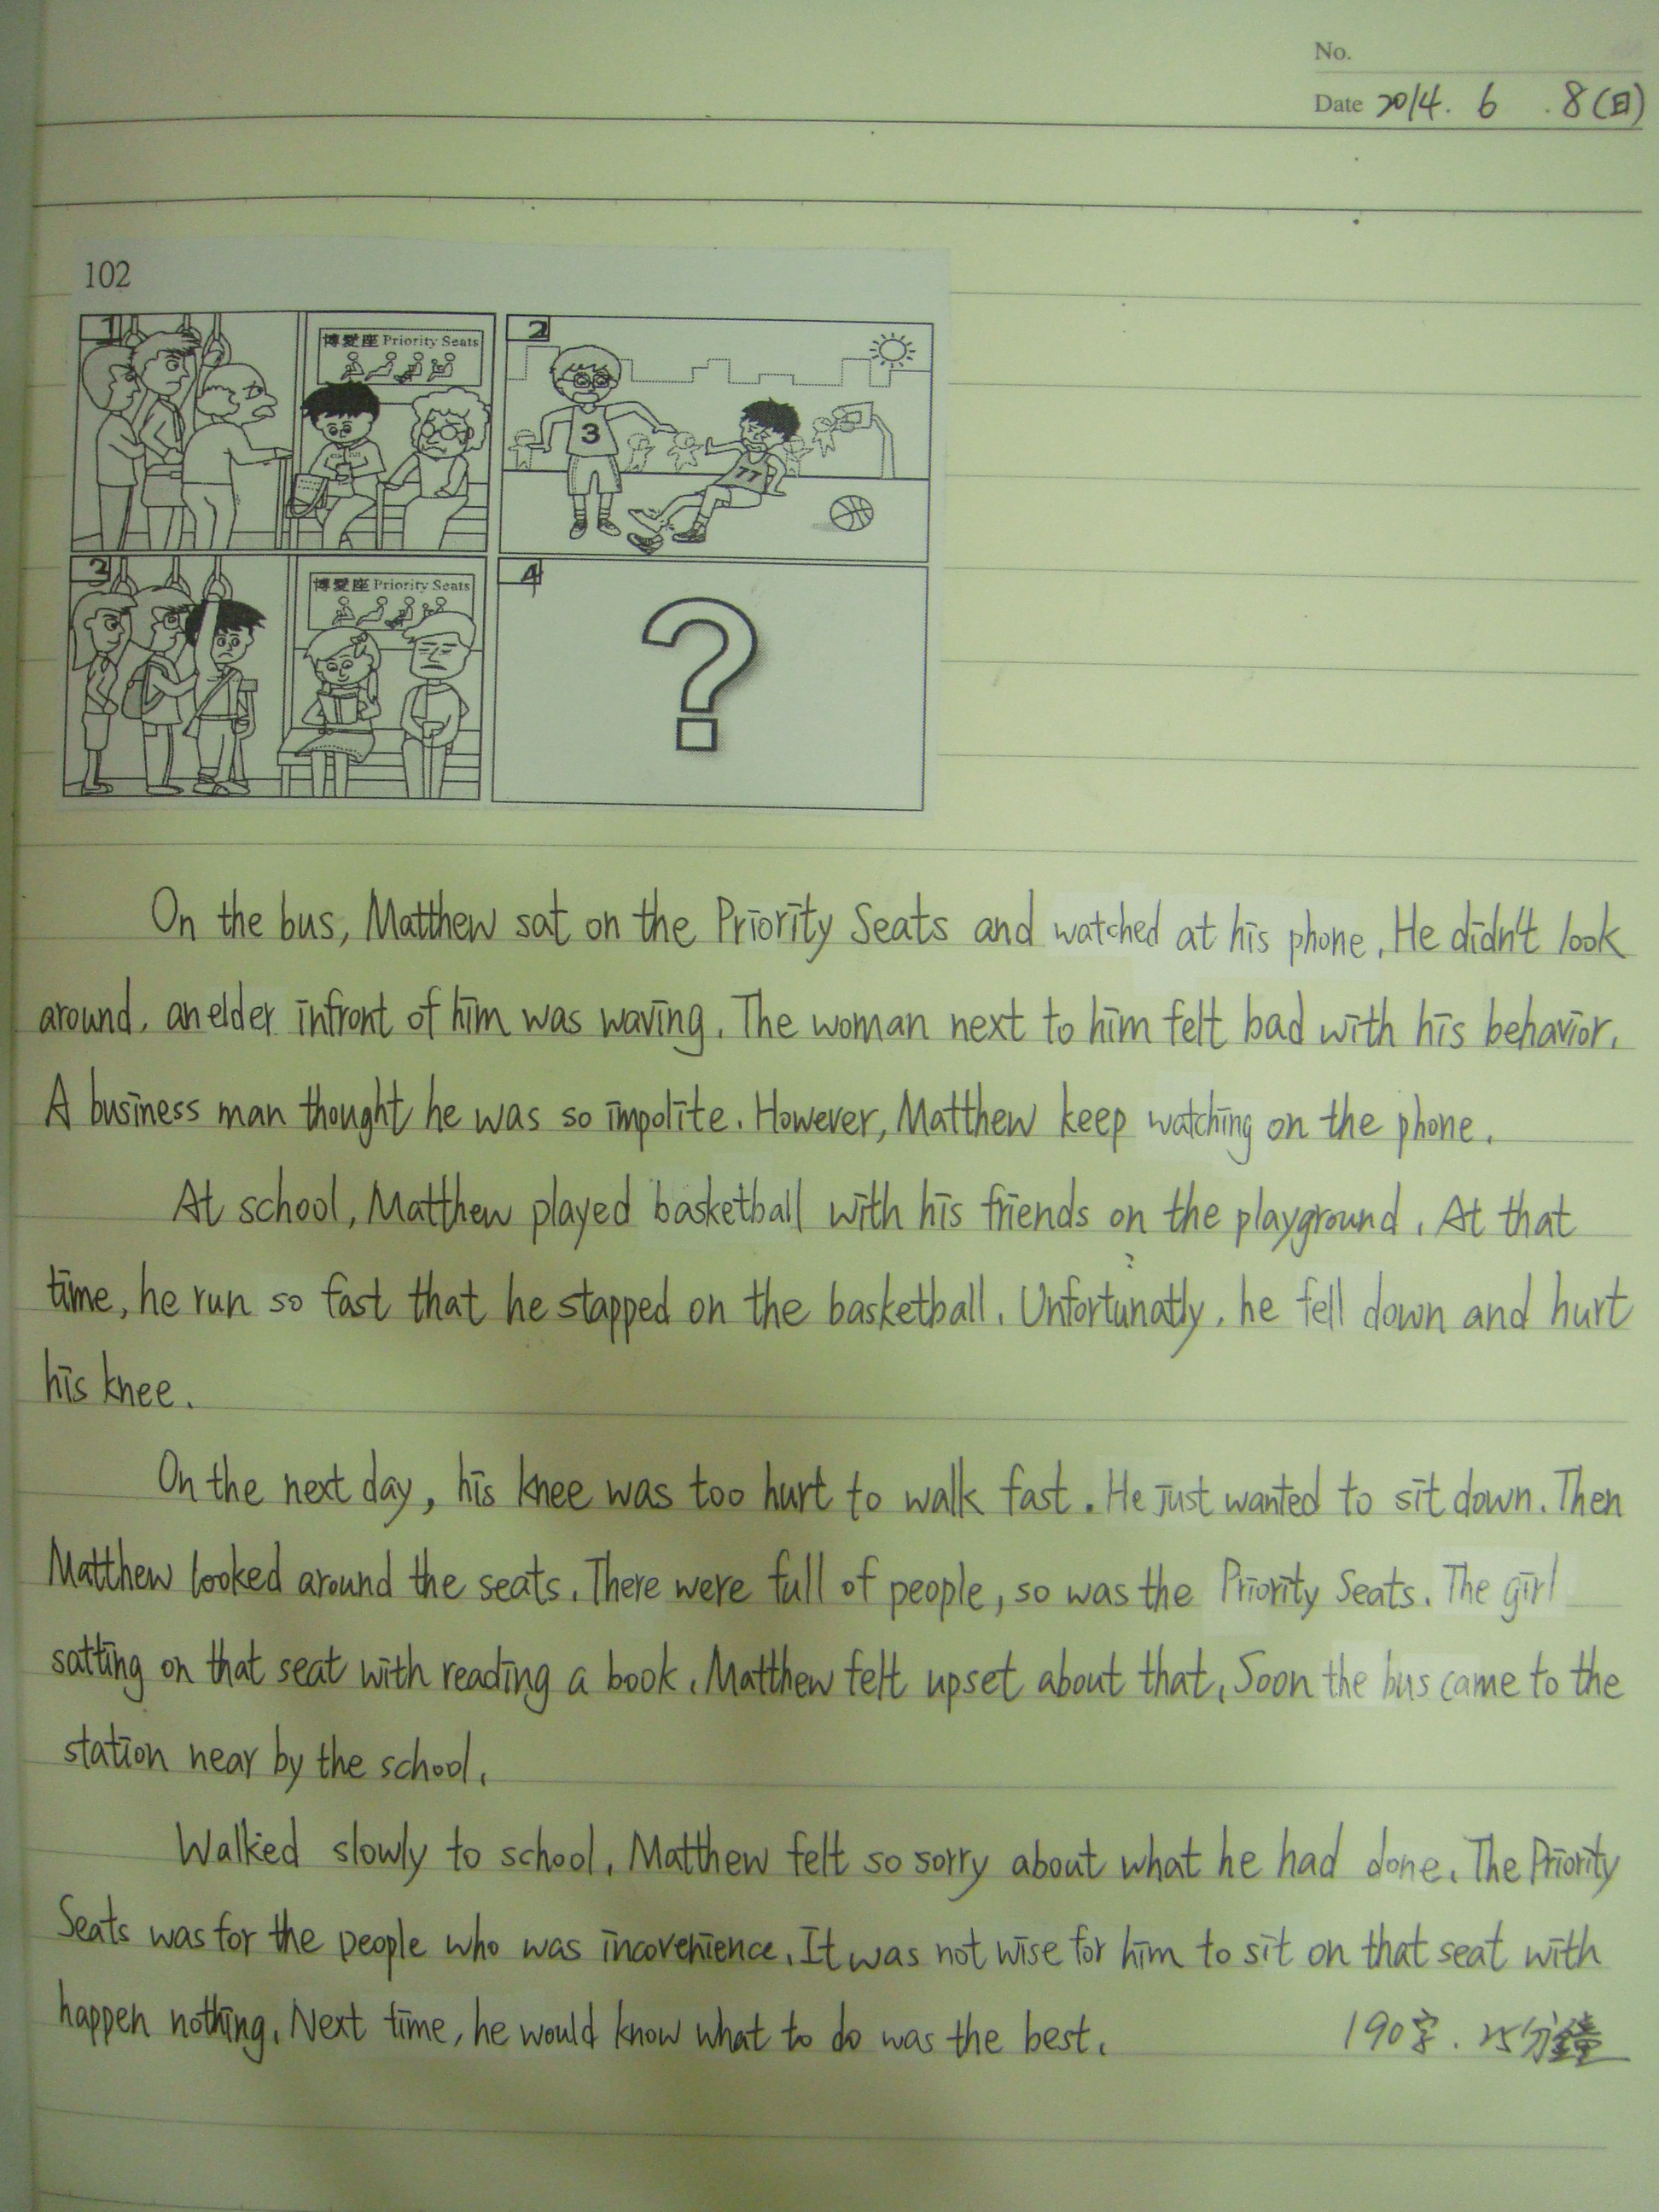 No.
Date 2014. 6 . 8(日)
102
1
博愛座 Priority Seats
2
3
77
3
博愛座 Priority Seats
4
?
On the bus, Matthew sat on the Priority Seats and watched at his phone. He didn't look
around, an elder infront of him was waving. The woman next to him felt bad with his behavior.
A business man thought he was so impolite. However, Matthew keep watching on the phone.
At school, Matthew played basketball with his friends on the playground. At that
time, he run so fast that he stapped on the basketball. Unfortunatly, he fell down and hurt
his knee.
On the next day, his knee was too hurt to walk fast. He just wanted to sit down. Then
Matthew looked around the seats. There were full of people, so was the Priority Seats. The girl
satting on that seat with reading a book. Matthew felt upset about that. Soon the bus came to the
station near by the school.
Walked slowly to school, Matthew felt so sorry about what he had done. The Priority
Seats was for the people who was incovenience. It was not wise for him to sit on that seat with
happen nothing. Next time, he would know what to do was the best.
190字. 25分鐘